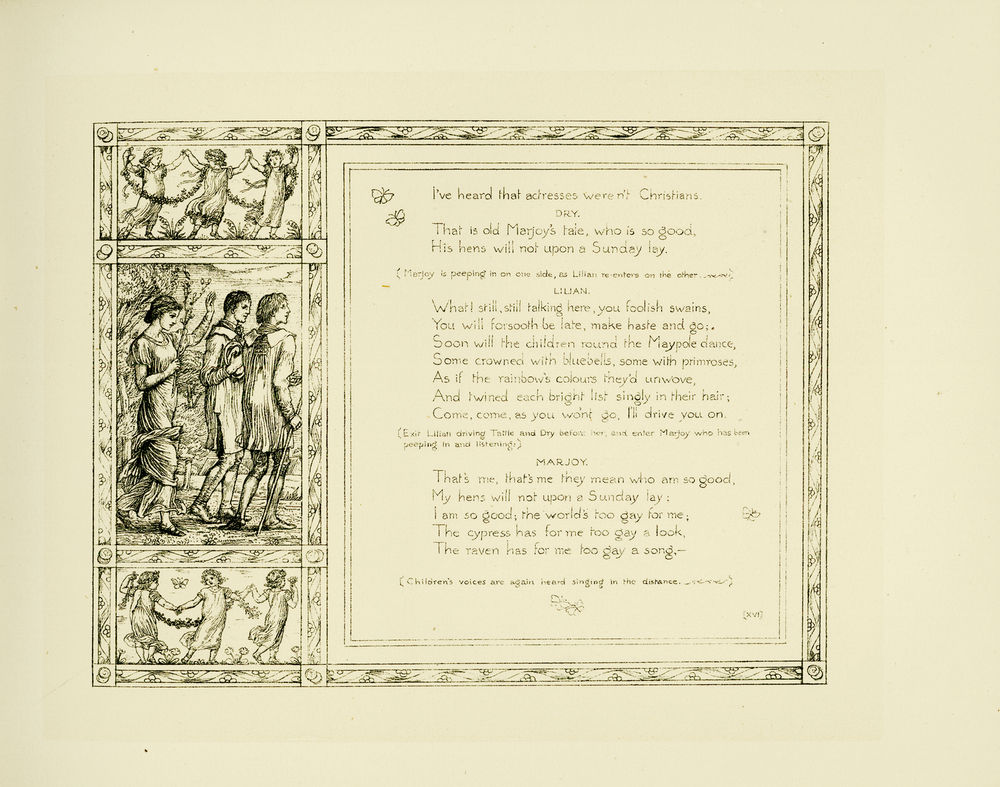 I've heard that actresses weren't Christians.
DRY.
That is old Marjoy's tale, who is so good,
His hens will not upon a Sunday lay.
(Marjoy is peeping in on one side, as Lilian re-enters on the other.)
LILIAN.
What! still, still talking here, you foolish swains,
You will forsooth be late, make haste and go;
Soon will the children round the Maypole dance,
Some crowned with bluebells, some with primroses,
As if the rainbow's colours they'd unwove,
And twined each bright list singly in their hair;
Come, come, as you wont go, I'll drive you on.
(Exit Lilian driving Tattle and Dry before her, and enter Marjoy who has been
peeping in and listening.)
MARJOY.
That's me, that's me they mean who am so good,
My hens will not upon a Sunday lay:
I am so good; the world's too gay for me;
The cypress has for me too gay a look,
The raven has for me too gay a song,—
(Children's voices are again heard singing in the distance.)
(XVI)